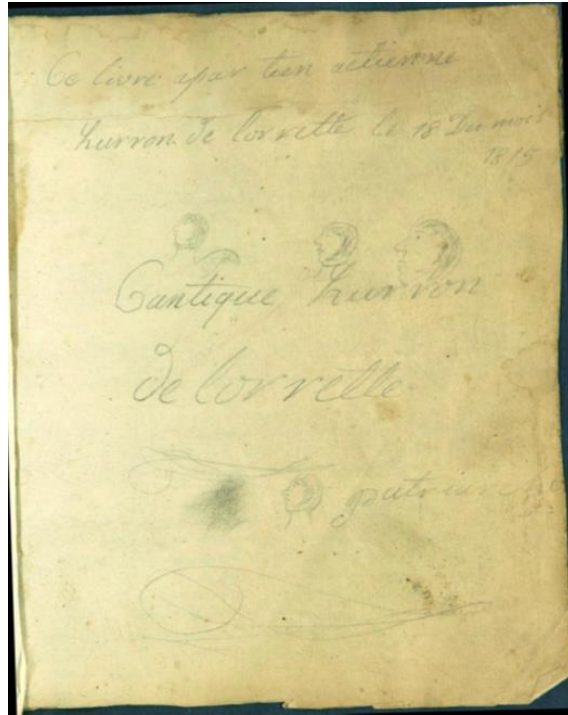 Ce livre apar tien aetienne
hurron de lorrette le 18 Du mois
1815
Cantique hurron
de lorrette